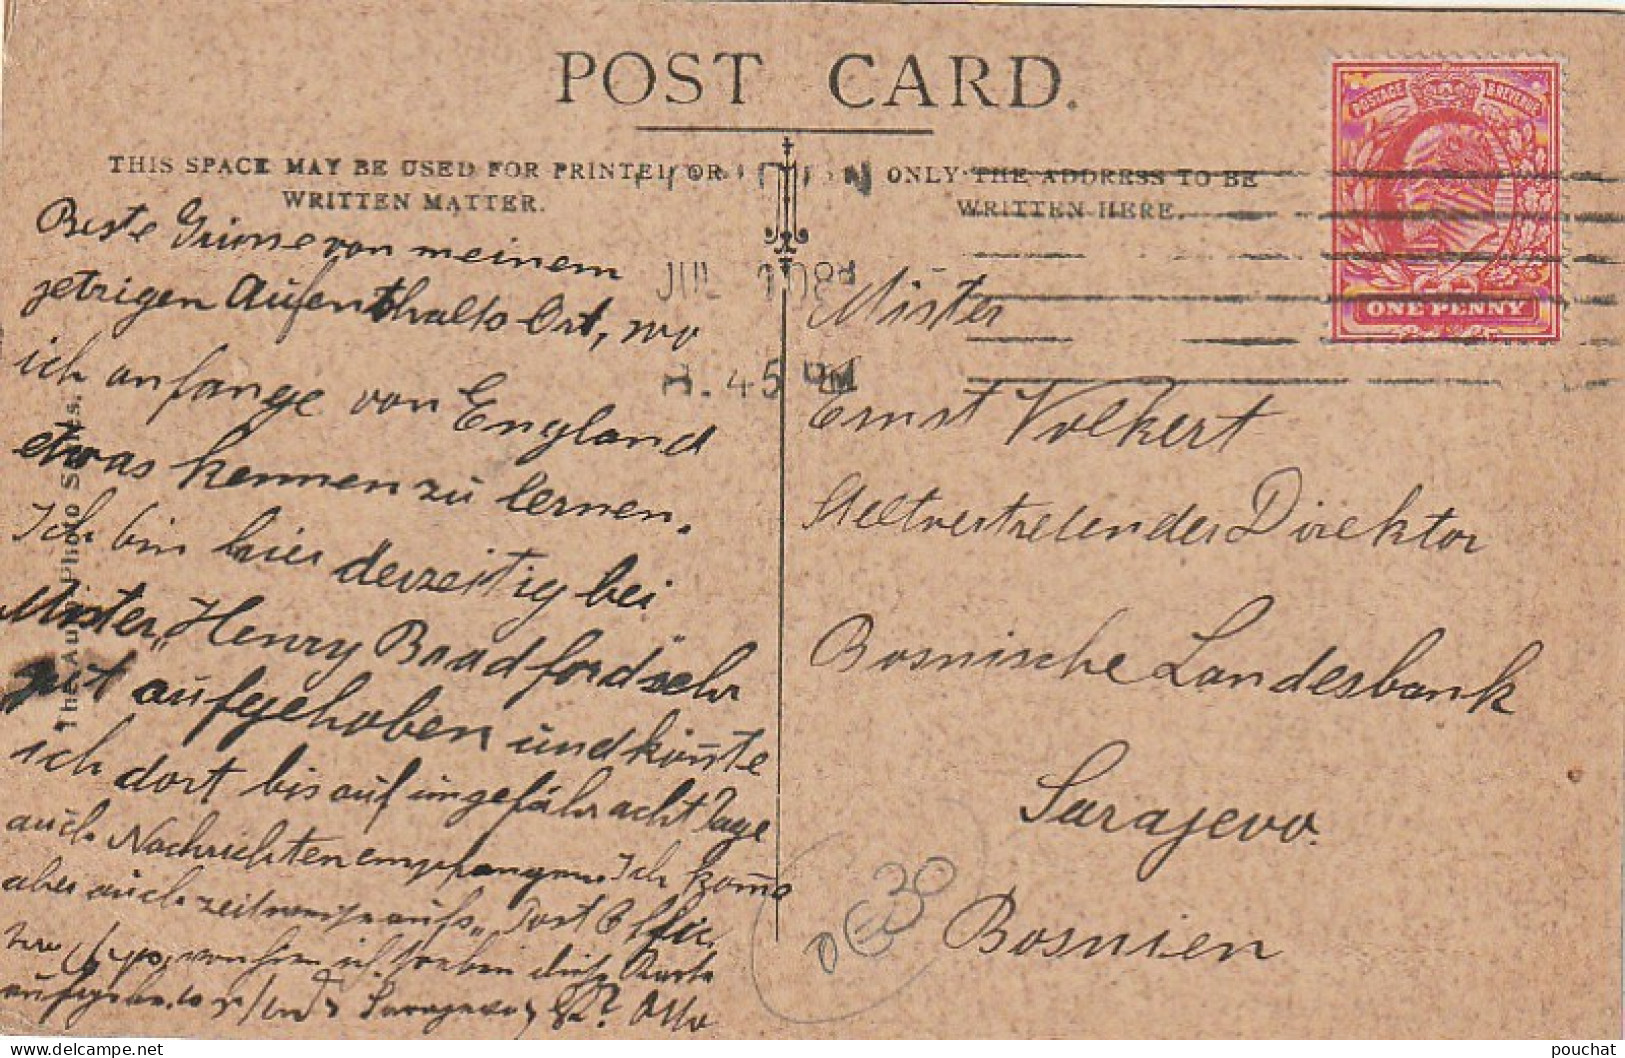 POST CARD.
THIS SPACE MAY BE USED FOR PRINTED OR
WRITTEN MATTER.
ONLY THE ADDRESS TO BE
WRITTEN HERE.
POSTAGE & REVENUE
ONE PENNY
JUL 08
.45 PM
Beste Grüsse von meinem
jetzigen Aufenthalts Ort, wo
ich anfange von England
etwas kennen zu lernen.
Ich bin hier derzeitig bei
Mister „Henry Bradford" sehr
gut aufgehoben und könnte
ich dort bis auf ungefähr acht Tage
auch Nachrichten empfangen. Ich kome
aber auch zeitweise aufs „Post Offic
ich soeben diese Karte
Sarajevo Otto
Mister
Ernst Volkert
Stellvertretender Direktor
Bosnische Landesbank
Sarajevo.
Bosnien
The Photo Series.
pouchat